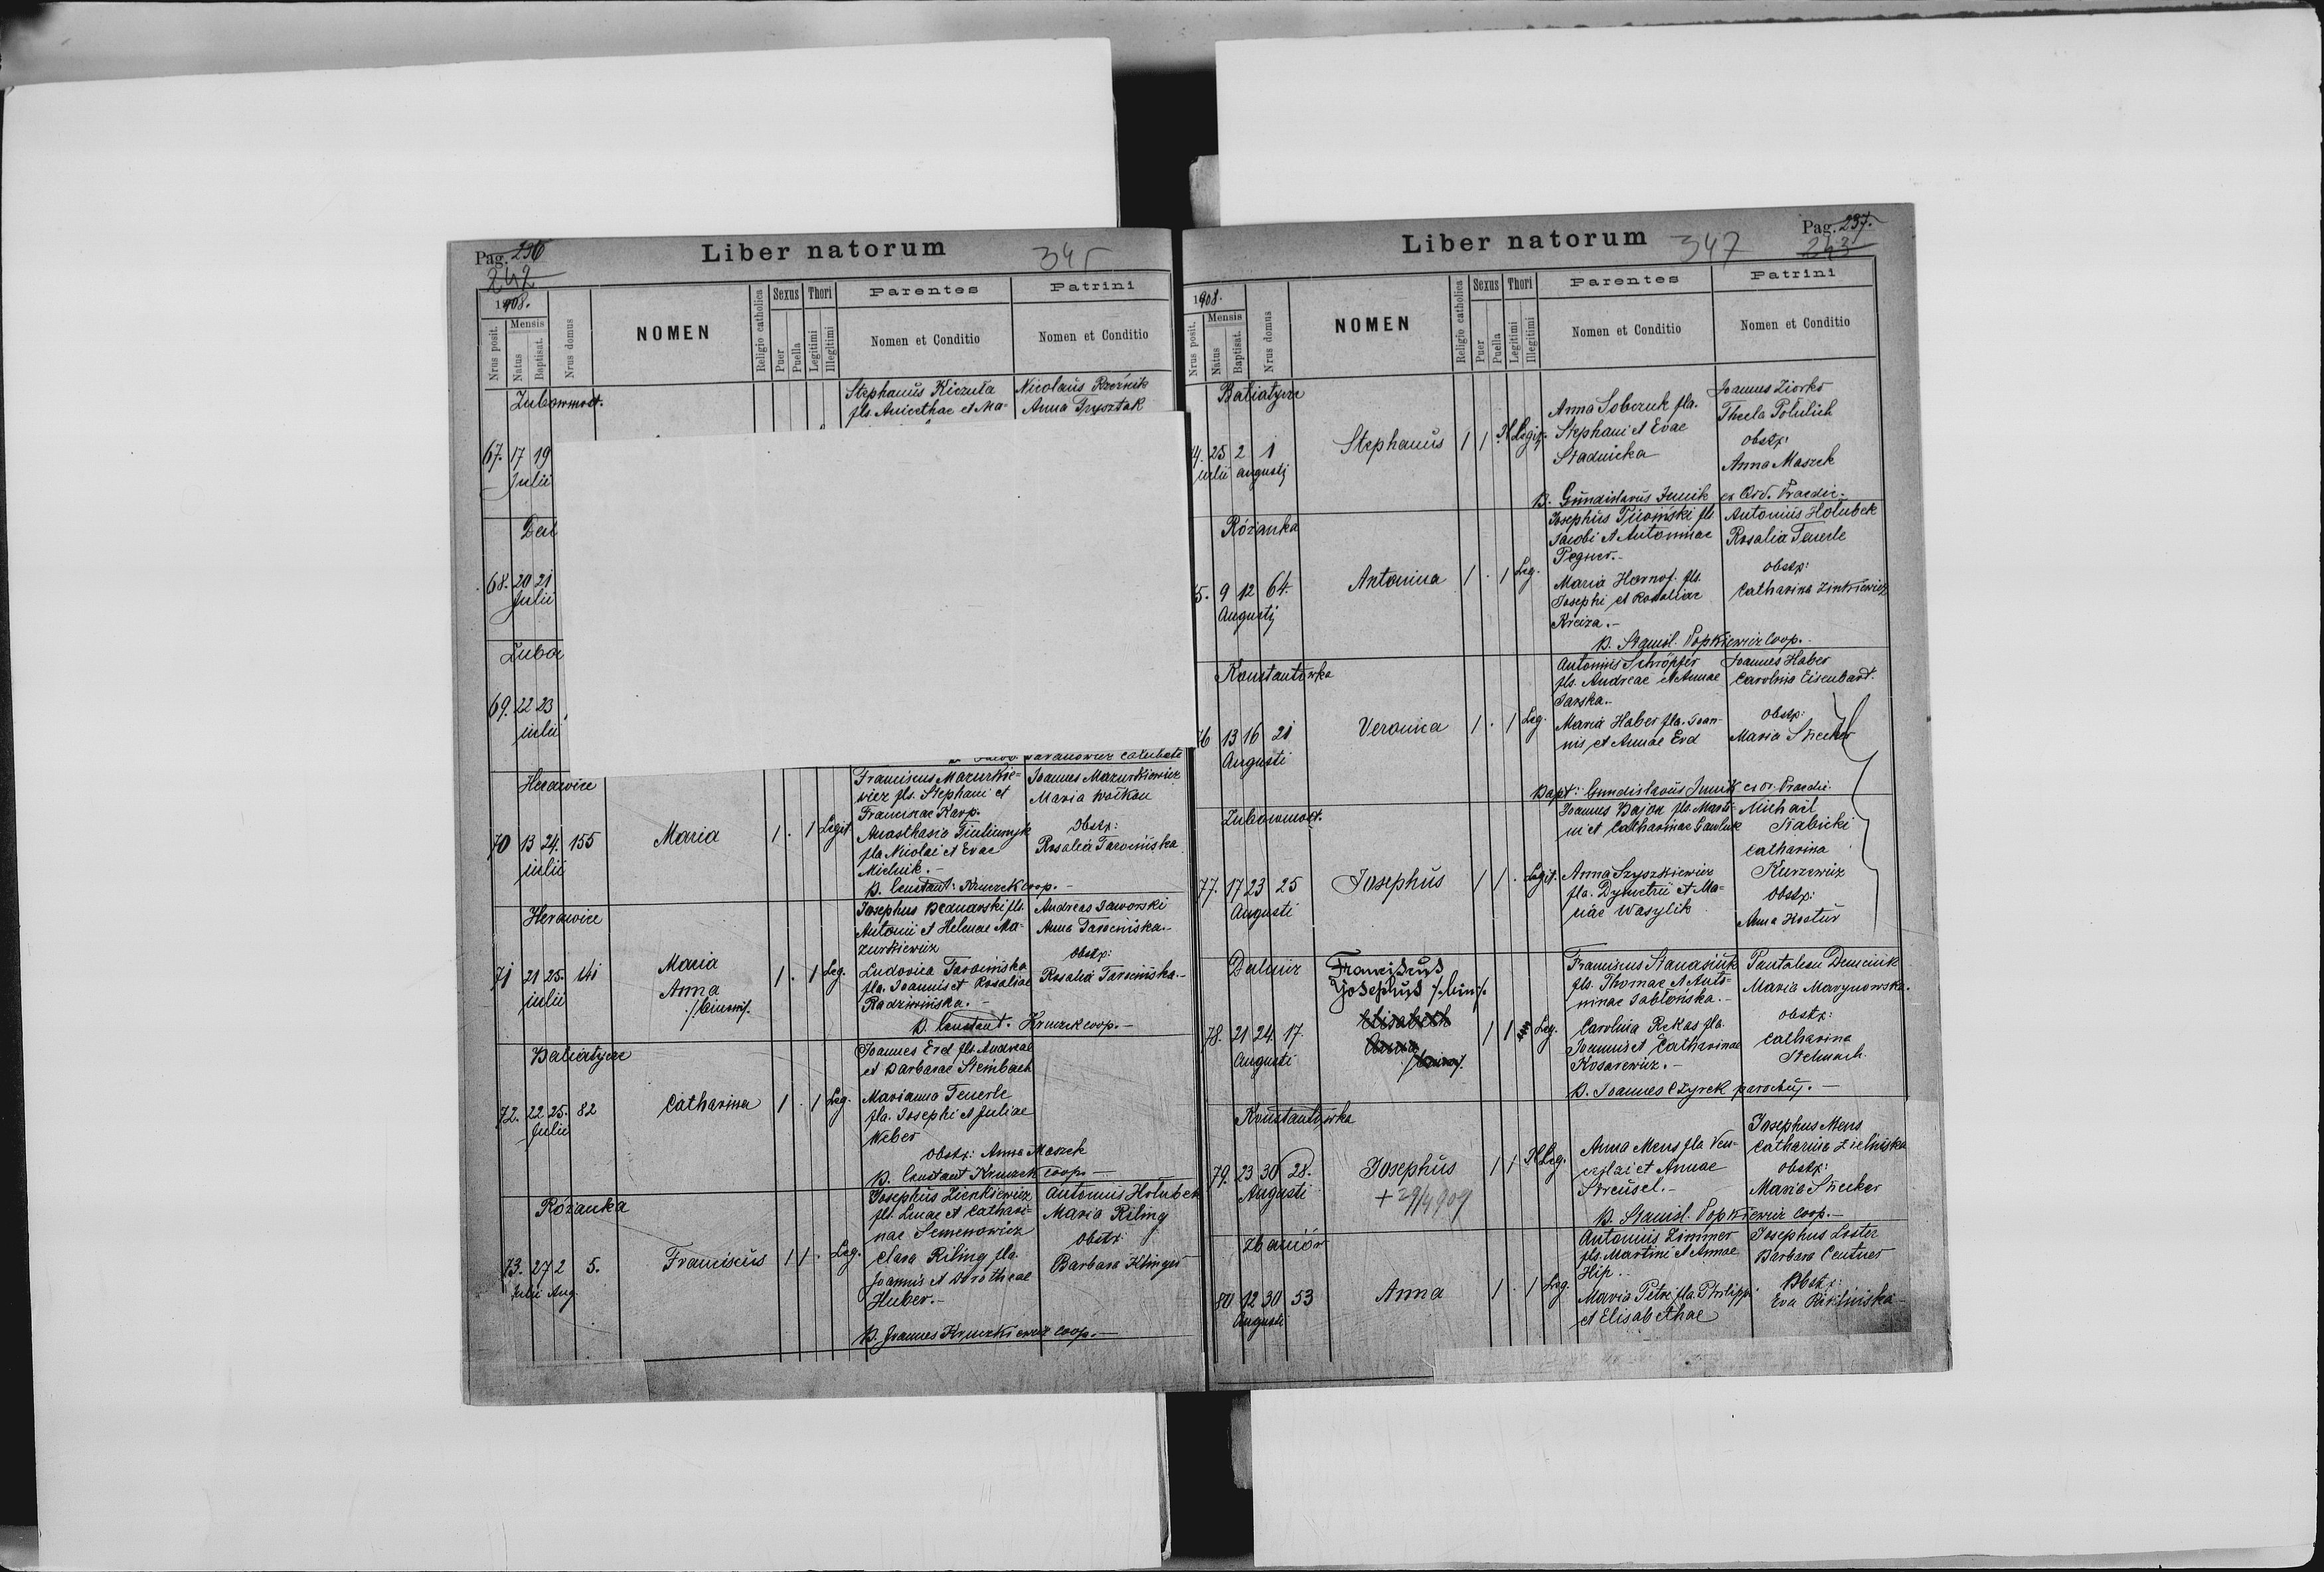 Pag. 236
242
Liber natorum
345
1908.
Nrus posit.
Mensis
Natus
Baptisat.
Nrus domus
NOMEN
Religio catholica
Sexus
Puer
Puella
Thori
Legitimi
Illegitimi
Parentes
Nomen et Conditio
Patrini
Nomen et Conditio
Stephanus Kiczuła
fls. Anicethae et Ma-
Nicolaus
Anna Trysztak
67. 17 19
Julii
68. 20 21
Julii
69. 22 23
iulii
Franciscus Mazurkie-
wicz fls. Stephani et
Franciscae Karp.
Anasthasia
fla Nicolai et Evae
Mielnik.-
Joannes Mazurkiewicz
Maria Wołkan
Obstx:
Rosalia Tarocińska
70 13 24. 155
iulii
Maria
1 . 1 Legit.
B. Constant: Kruczek coop.-
Josephus Bednarski fls.
Antonii et Helenae Ma-
zurkiewicz
Ludovica Tarocińska
fla. Joannis et Rosaliae
Radziwińska.-
Andreas Jaworski
Anna Tarocińska.-
obstx:
Rosalia Tarocińska.-
71 21 25. 141
iulii
Maria
Anna
1 . 1 Leg.
B. Constant. Kruczek coop.-
Baliatycze
Joannes Erd fls. Andreae
et Barbarae Steinbach
Marianna Feuerle
fla. Josephi et Juliae
Weber
72. 22 25. 82
Julii
Catharina
1 . 1 Leg.
Obstx: Anna Maszek
B. Constant Kruczek coop.-
Różanka
Josephus Zienkiewicz
fls. Lucae et Cathari-
nae Semenowicz
Clara Riling fla.
Joannis et Dorotheae
Huber.-
Antonius Holubek
Maria Riling
Obstx:
Barbara Klinger
73. 27 2 5.
Julii Aug.
Franciscus
1 1 . Leg.
B. Joannes Kruczkiewicz coop.-
Liber natorum
347
Pag. 237.
243
1908.
Nrus posit.
Mensis
Natus
Baptisat.
Nrus domus
NOMEN
Religio catholica
Sexus
Puer
Puella
Thori
Legitimi
Illegitimi
Parentes
Nomen et Conditio
Patrini
Nomen et Conditio
Baliatycze
Anna Sobczuk fla.
Stephani et Evae
Stadnicka
Joannes Ziorko
Thecla Połulich
obstx:
Anna Maszek
4. 25 2 1
iulii augusti
Stephanus
B. Gundislavus Junik ex Ord. Praedic.
Różanka
Josephus
Jacobi et Antoninae
Pegner.-
Maria
Josephi et Rosaliae
Antonius Holubek
Rosalia Feuerle
obstx:
Catharina Zinkiewicz
5. 9 12 64.
Augusti
Antonina
1 . 1 Leg.
B. Stanisl. Popkiewicz coop.-
Konstantówka
Antonius Schröpfer
fls. Andreae et Annae
Jarska.-
Maria Haber fla. Joan-
nis et Annae Erd
Joannes Haber
Carolina Eisenbart.
Obstx:
Maria Strecker
76 13 16 21
Augusti
Veronica
1 . 1 Leg.
Bapt: Gundislavus Junik ex Or. Praedic.
Joannes Bajon fls. Marti-
ni et Catharinae Pawluk
Anna Szyszkiewicz
fla. Dymetrii et Ma-
riae Wasylik
Michail
Stabicki
Catharina
Kurzewicz
Obstx:
Anna Kostur
77. 17 23 25
Augusti
Josephus
1 1 . Legit.
Franciscus
Josephus
Franciscus Stanasiuk
fls. Thomae et Anto-
ninae Jabłońska.-
Carolina Rekas fla.
Joannis et Catharinae
Kosarewicz.-
Pantaleon Demciuk
Maria Marynowska.
obstx:
Catharina
Stelmach.
78. 21 24. 17.
Augusti
Elisabeth
Anna
1 1 Leg.
B. Joannes Czyrek parochus.-
Konstantówka
Anna Mens fla Ven-
ceslai et Annae
Streusel.-
Josephus Mens
Catharina Zielińska
obstx:
Maria Strecker
79. 23 30 28.
Augusti
Josephus
+ 29/4 909
B. Stanisl. Popkiewicz coop.-
Antonius Zimmer
fls. Martini et Annae
Hip.-
Maria Petri fla. Philippi
et Elisabethae
Josephus Loster
Barbara Centner
Obstx:
80 12 30 53
Augusti
Anna
1 . 1 Leg.